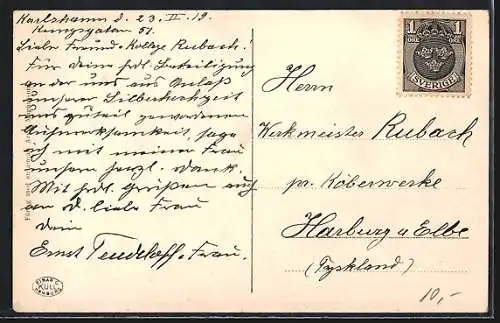 Karlshamn d. 23. II. 19.
Kungsgatan 51.
Liebe Freund u. Kollege Rubach!
Für deine frdl. Beteiligung
an der uns aus Anlaß
unserer Silberhochzeit
uns zuteil gewordenen
Aufmerksamkeit, sage
ich mit meiner Frau
unsern herzl. Dank.
Mit frdl. Grüßen auch
an d. liebe Frau
Dein
Ernst u. Frau.
Herrn
Werkmeister Rubach
pr. Köberwerke
Harburg a Elbe
(Tyskland)
1 1
ÖRE ÖRE
SVERIGE
10,-